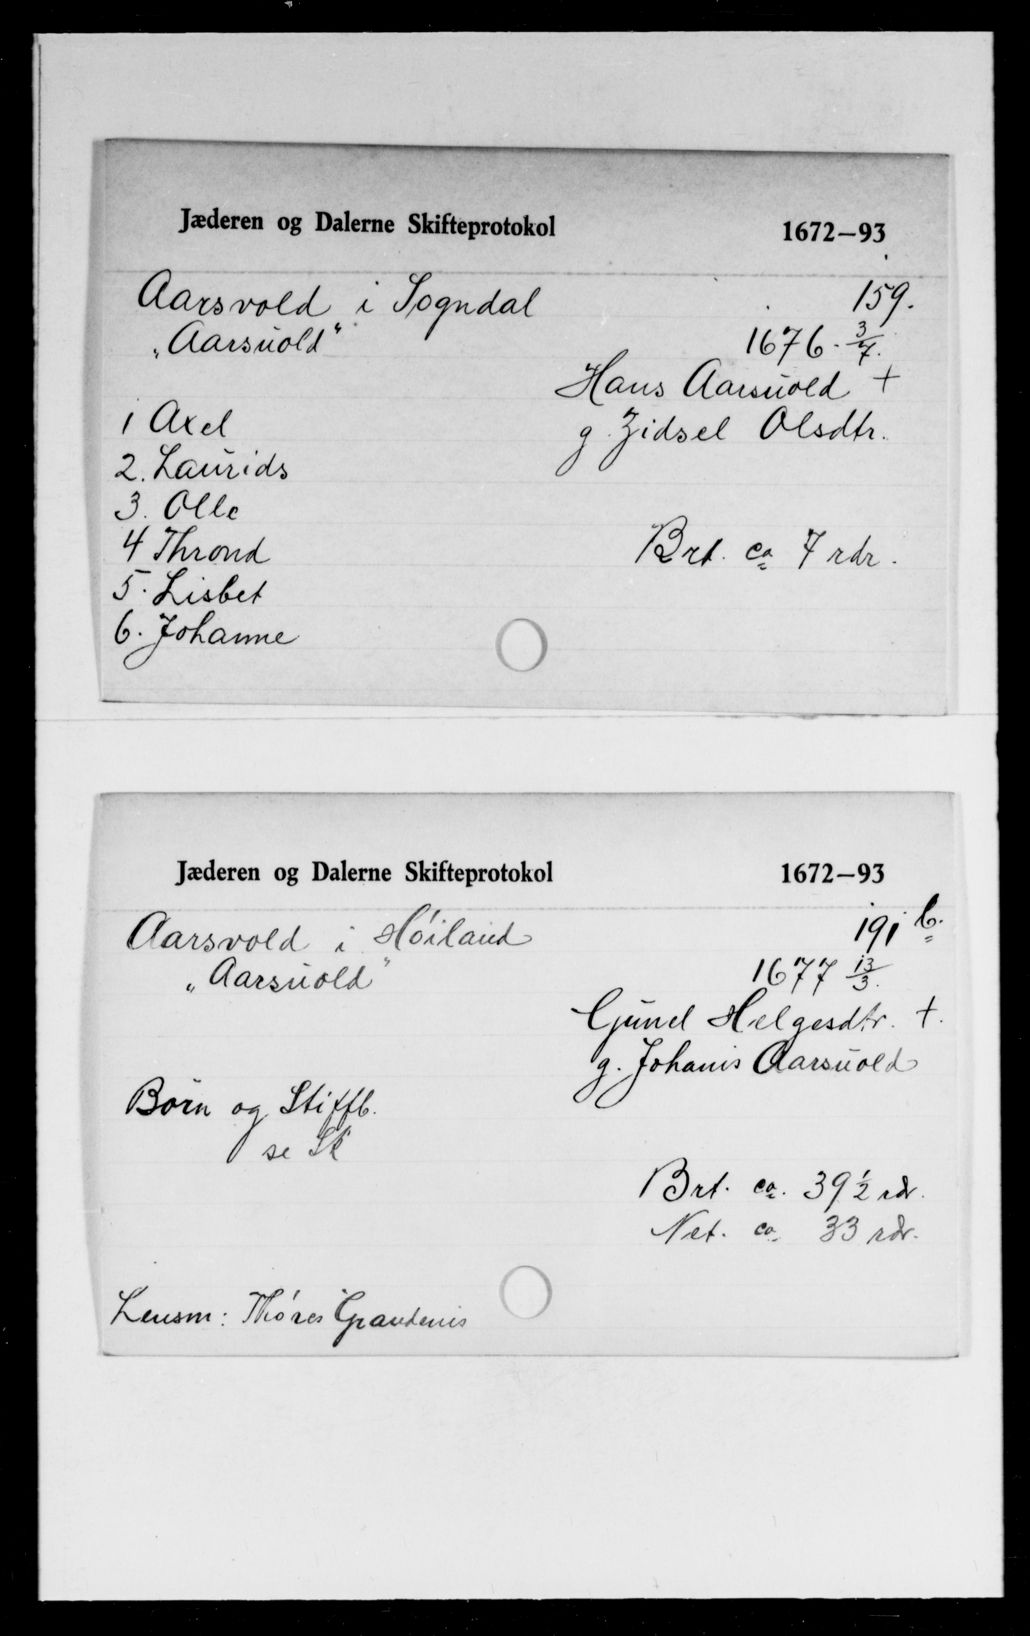 Jæderen og Dalerne Skifteprotokol 1672—93
Aarsvold i Sogndal 159.
„Aarsuold“ 1676 - 3/7.
Hans Aarsuold +
1 Axel g. Zidsel Olsdtr.
2. Laurids
3. Olle
4 Thrond Brt. ca 7 rdr.
5. Lisbet
6. Johanne
Jæderen og Dalerne Skifteprotokol 1672—93
Aarsvold i Høiland 191 b.
„Aarsuold“ 1677 13/3.
Gunel Helgesdtr. +.
g. Johanis Aarsuold
Børn og Stiffb.
se Sk
Brt. ca. 39 1/2 rdr.
Net. ca. 33 rdr.
Lensm: Thøres